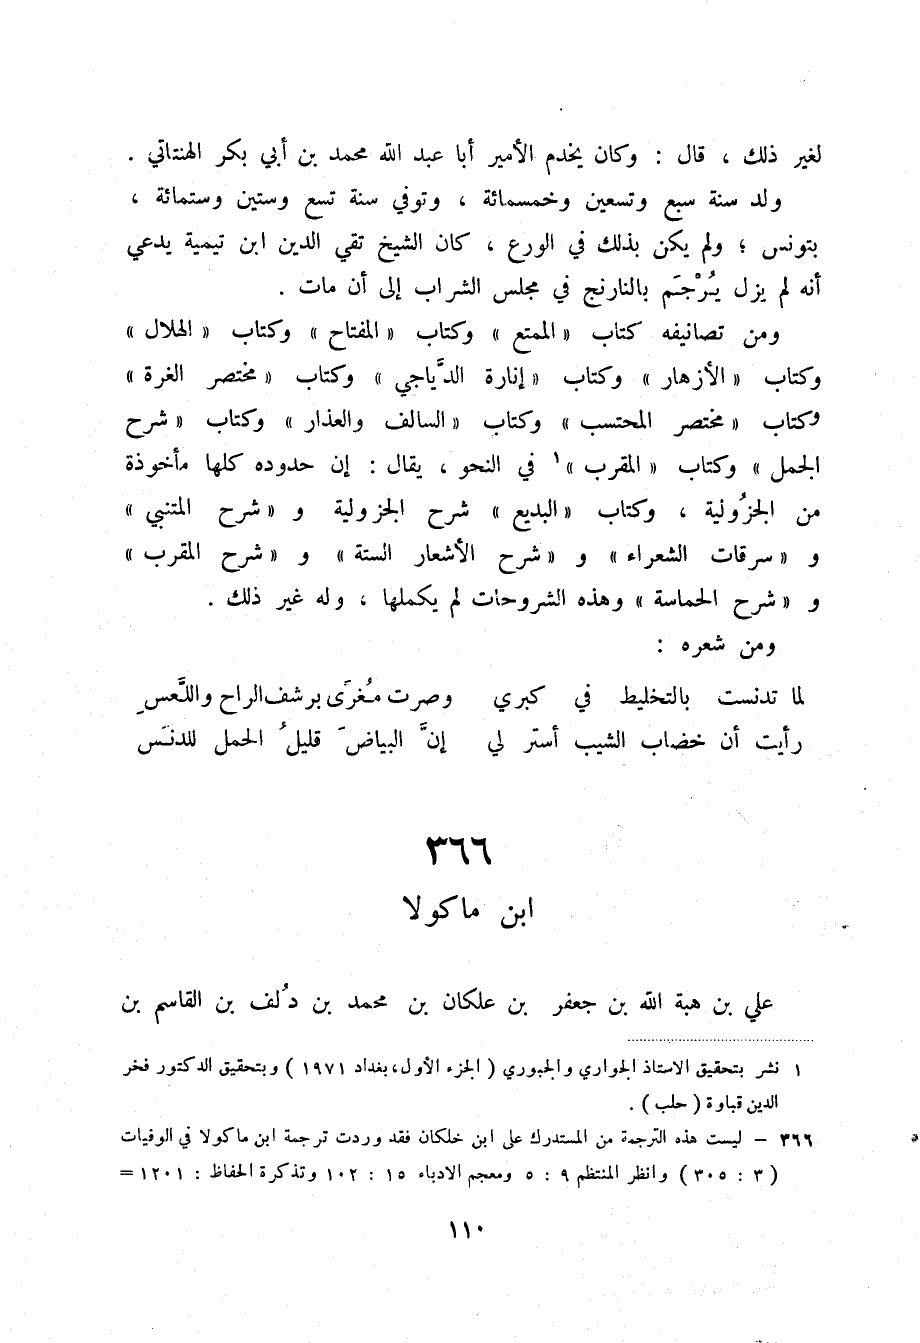 لغير ذلك ، قال : وكان يخدم الأمير أبا عبد الله محمد بن أبي بكر الهنتاتي .
ولد سنة سبع وتسعين وخمسمائة ، وتوفي سنة تسع وستين وستمائة ،
بتونس ؛ ولم يكن بذلك في الورع ، كان الشيخ تقي الدين ابن تيمية يدعي
أنه لم يزل يُرْجَم بالنارنج في مجلس الشراب إلى أن مات .
ومن تصانيفه كتاب « الممتع » وكتاب « المفتاح » وكتاب « الهلال »
وكتاب « الأزهار » وكتاب « إنارة الدَّياجي » وكتاب « مختصر الغرة »
وكتاب « مختصر المحتسب » وكتاب « السالف والعذار » وكتاب « شرح
الجمل » وكتاب « المقرب »١ في النحو ، يقال : إن حدوده كلها مأخوذة
من الجزُولية ، وكتاب « البديع » شرح الجزولية و « شرح المتنبي »
و « سرقات الشعراء » و « شرح الأشعار الستة » و « شرح المقرب »
و « شرح الحماسة » وهذه الشروحات لم يكملها ، وله غير ذلك .
ومن شعره :
لما تدنست بالتخليط في كبري وصرت مُغرَى برشف الراح واللَّعسِ
رأيت أن خضاب الشيب أستر لي إنَّ البياضَ قليلُ الحمل للدنَس
٣٦٦
ابن ماكولا
علي بن هبة الله بن جعفر بن علكان بن محمد بن دُلف بن القاسم بن
١ نشر بتحقيق الاستاذ الجواري والجبوري ( الجزء الأول، بغداد ١٩٧١ ) وبتحقيق الدكتور فخر
الدين قباوة ( حلب ) .
٣٦٦ - ليست هذه الترجمة من المستدرك على ابن خلكان فقد وردت ترجمة ابن ماكولا في الوفيات
( ٣ : ٣٠٥ ) وانظر المنتظم ٩ : ٥ ومعجم الادباء ١٥ : ١٠٢ وتذكرة الحفاظ : ١٢٠١ =
١١٠